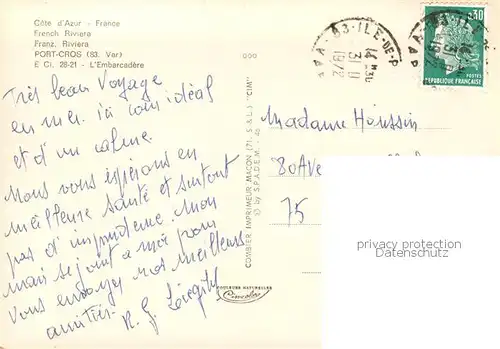 Côte d'Azur - France
French Riviera
Franz. Riviera
PORT-CROS (83. Var)
E Ci. 28-21 - L'Embarcadère
Très beau Voyage
en mer. ici coin idéal
et d'un calme.
Nous vous espérons en
meilleure santé et surtout
pas d'imprudence. Mon
mari se joint à moi pour
vous envoyer nos meilleures
amitiés.
COMBIER IMPRIMEUR MACON (71, S.&L.) "CIM"
© by S.P.A.D.E.M.
COULEURS NATURELLES
Cincolor
83-ILE-DE-P
14
1972
0,30
POSTES
REPUBLIQUE FRANÇAISE
Madame Houssin
80 Ave
75
privacy protection
Datenschutz